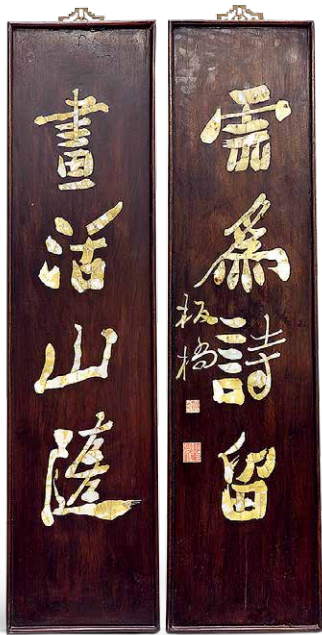 雲爲詩留
板橋
畫活山隨